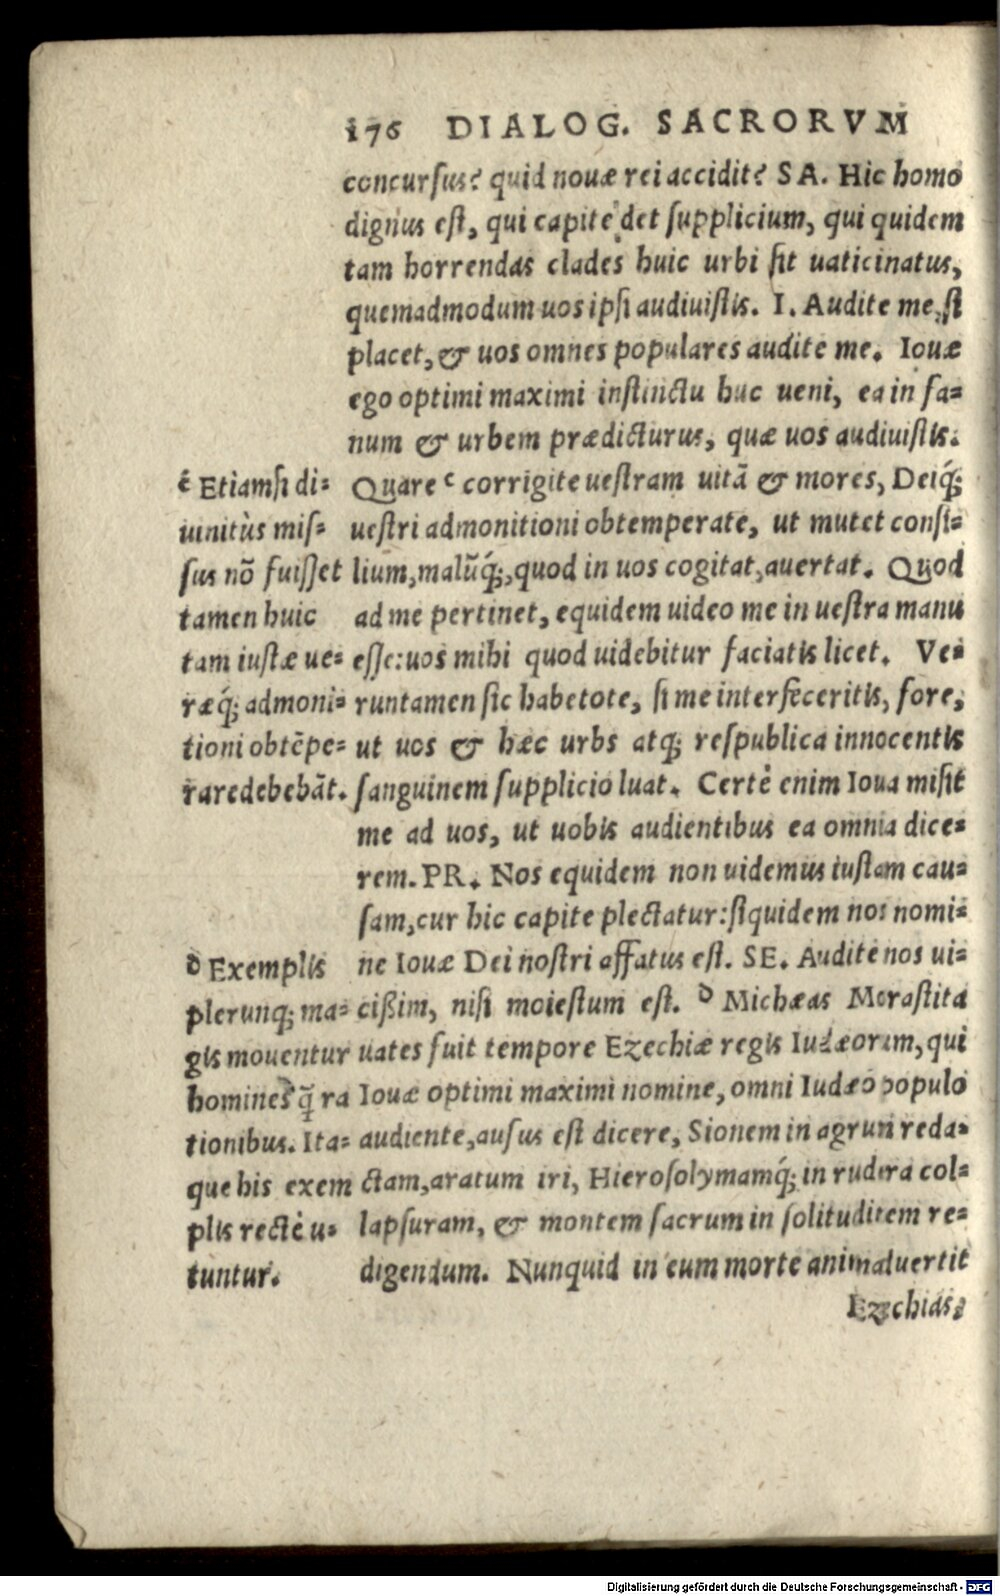 176 DIALOG. SACRORVM
concursus? quid nouæ rei accidit? SA. Hic homo
dignus est, qui capite det supplicium, qui quidem
tam horrendas clades huic urbi sit uaticinatus,
quemadmodum uos ipsi audiuistis. I. Audite me, si
placet, & uos omnes populares audite me. Iouæ
ego optimi maximi instinctu huc ueni, ea in fa=
num & urbem prædicturus, quæ uos audiuistis.
Quare c corrigite uestram uitā & mores, Deiq́;
uestri admonitioni obtemperate, ut mutet consi=
lium, malūq́;, quod in uos cogitat, auertat. Quod
ad me pertinet, equidem uideo me in uestra manu
esse: uos mihi quod uidebitur faciatis licet. Ve=
runtamen sic habetote, si me interfeceritis, fore,
ut uos & hæc urbs atq; respublica innocentis
sanguinem supplicio luat. Certè enim Ioua misit
me ad uos, ut uobis audientibus ea omnia dice=
rem. PR. Nos equidem non uidemus iustam cau=
sam, cur hic capite plectatur: siquidem nos nomi=
ne Iouæ Dei nostri affatus est. SE. Audite nos ui=
cißim, nisi molestum est. d Michæas Morastita
uates fuit tempore Ezechiæ regis Iudæorum, qui
Iouæ optimi maximi nomine, omni Iudæo populo
audiente, ausus est dicere, Sionem in agrum reda=
ctam, aratum iri, Hierosolymamq́; in rudera col=
lapsuram, & montem sacrum in solitudinem re=
digendum. Nunquid in eum morte animaduertit
Ezechias,
c Etiamsi di=
uinitùs mis=
sus nō fuisset
tamen huic
tam iustæ ue=
ræq́; admoni=
tioni obtēpe=
rare debebāt.
d Exemplis
plerunq; ma=
gis mouentur
homines q̄ ra
tionibus. Ita=
que his exem
plis rectè u=
tuntur.
Digitalisierung gefördert durch die Deutsche Forschungsgemeinschaft - DFG